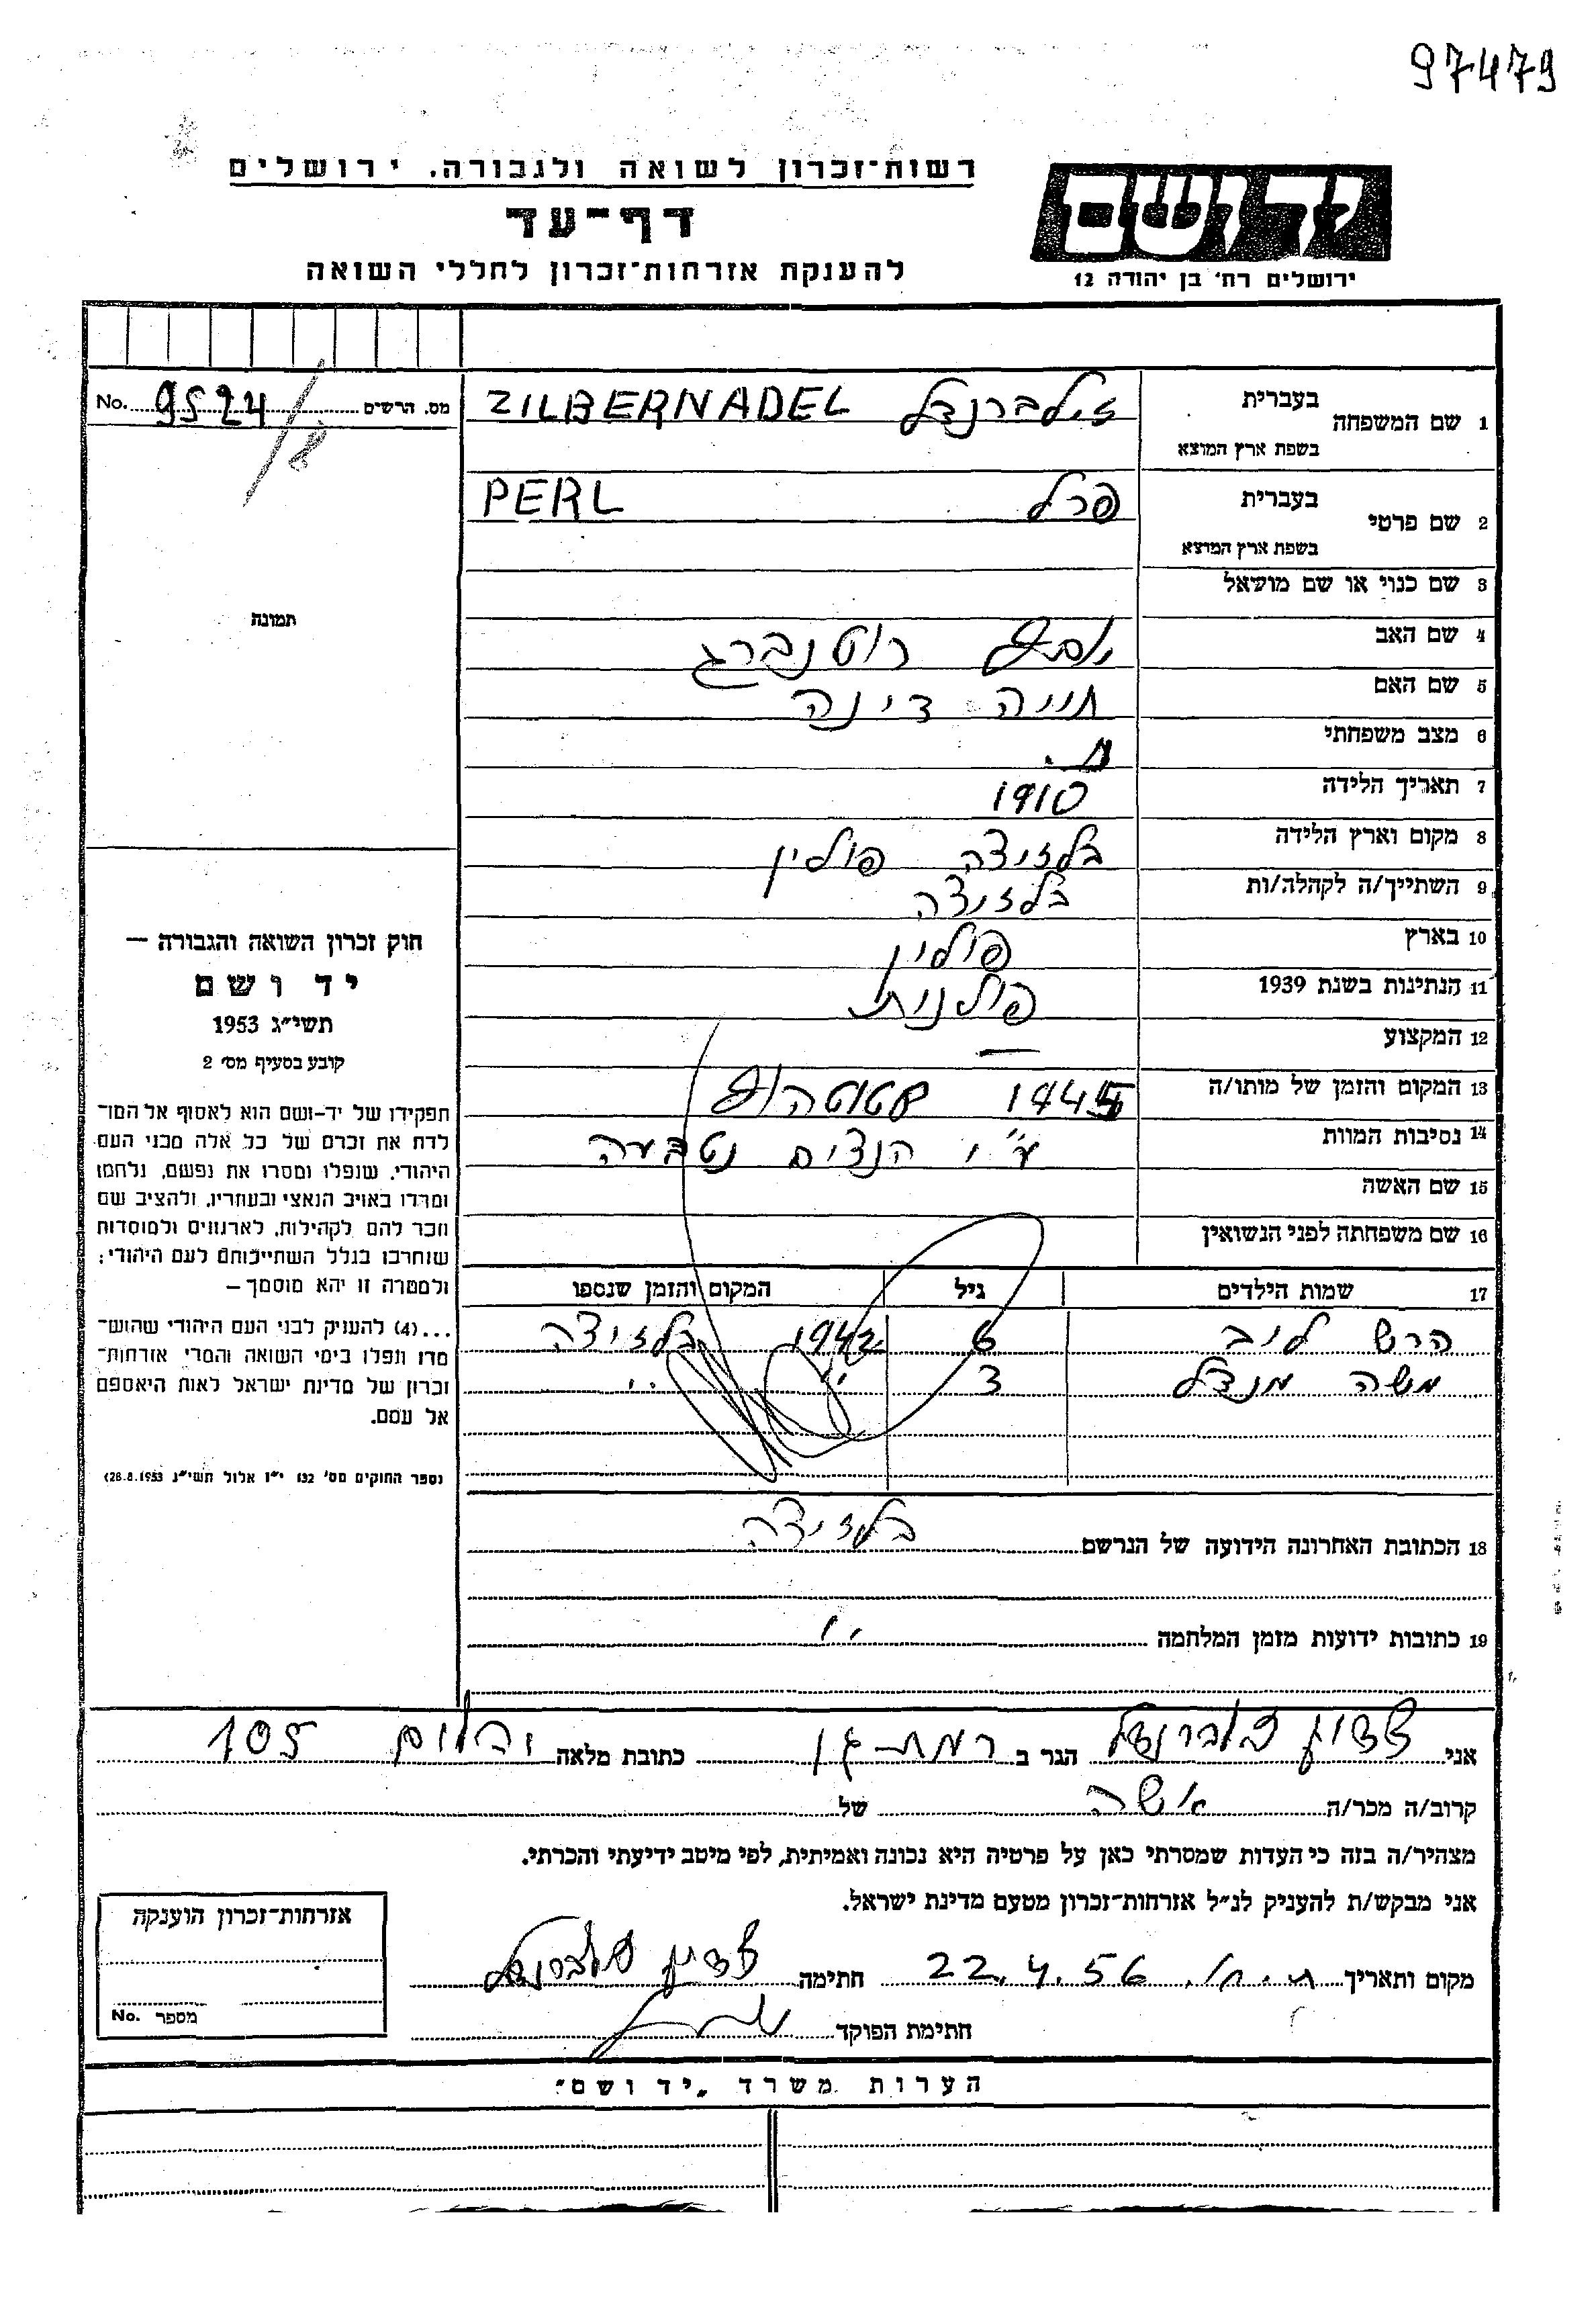 97479
רשות־זכרון לשואה ולגבורה. ירושלים
דף־עד
להענקת אזרחות־זכרון לחללי השואה
יד ושם
ירושלים רח׳ בן יהודה 12
מס. הרשים 9524/8 No.
1 שם המשפחה בעברית זילברנדל ZILBERNADEL
בשפת ארץ המוצא
2 שם פרטי בעברית פרל PERL
בשפת ארץ המוצא
תמונה
3 שם כנוי או שם מושאל
4 שם האב יוסף רוטנברג
5 שם האם חייה דינה
6 מצב משפחתי נ.
7 תאריך הלידה 1910
8 מקום וארץ הלידה בלזיצה פולין
9 השתייך/ה לקהלה/ות בלזיצה
10 בארץ פולין
11 הנתינות בשנת 1939 פולנית
12 המקצוע —
13 המקום והזמן של מותו/ה 1945 שטוטהוף
14 נסיבות המוות ע״י הנצים נטבעה
15 שם האשה
16 שם משפחתה לפני הנשואין
17 שמות הילדים גיל המקום והזמן שנספו
הרש לייב 6 1942 בלזיצה
משה מנדל 3 " "
18 הכתובת האחרונה הידועה של הנרשם בלזיצה
19 כתובות ידועות מזמן המלחמה "
חוק זכרון השואה והגבורה —
יד ושם
תשי״ג 1953
קובע בסעיף מס׳ 2
תפקידו של יד-ושם הוא לאסוף אל המו־
לדת את זכרם של כל אלה מבני העם
היהודי, שנפלו ומסרו את נפשם, נלחמו
ומרדו באויב הנאצי ובעוזריו, ולהציב שם
וזכר להם לקהילות, לארגונים ולמוסדות
שנחרבו בגלל השתייכותם לעם היהודי;
ולמטרה זו יהא מוסמך —
...(4) להעניק לבני העם היהודי שהוש־
מדו ונפלו בימי השואה והמרי אזרחות־
זכרון של מדינת ישראל לאות היאספם
אל עמם.
נספר החוקים מס׳ 132 י״ז אלול תשי״ג 28.8.1953)
אני הגר ב רמת-גן כתובת מלאה 105
קרוב/ה מכר/ה אשה של
מצהיר/ה בזה כי העדות שמסרתי כאן על פרטיה היא נכונה ואמיתית, לפי מיטב ידיעתי והכרתי.
אני מבקש/ת להעניק לנ״ל אזרחות־זכרון מטעם מדינת ישראל.
מקום ותאריך 22.4.56 חתימה
חתימת הפוקד
אזרחות־זכרון הוענקה
מספר No.
הערות משרד „יד ושם״